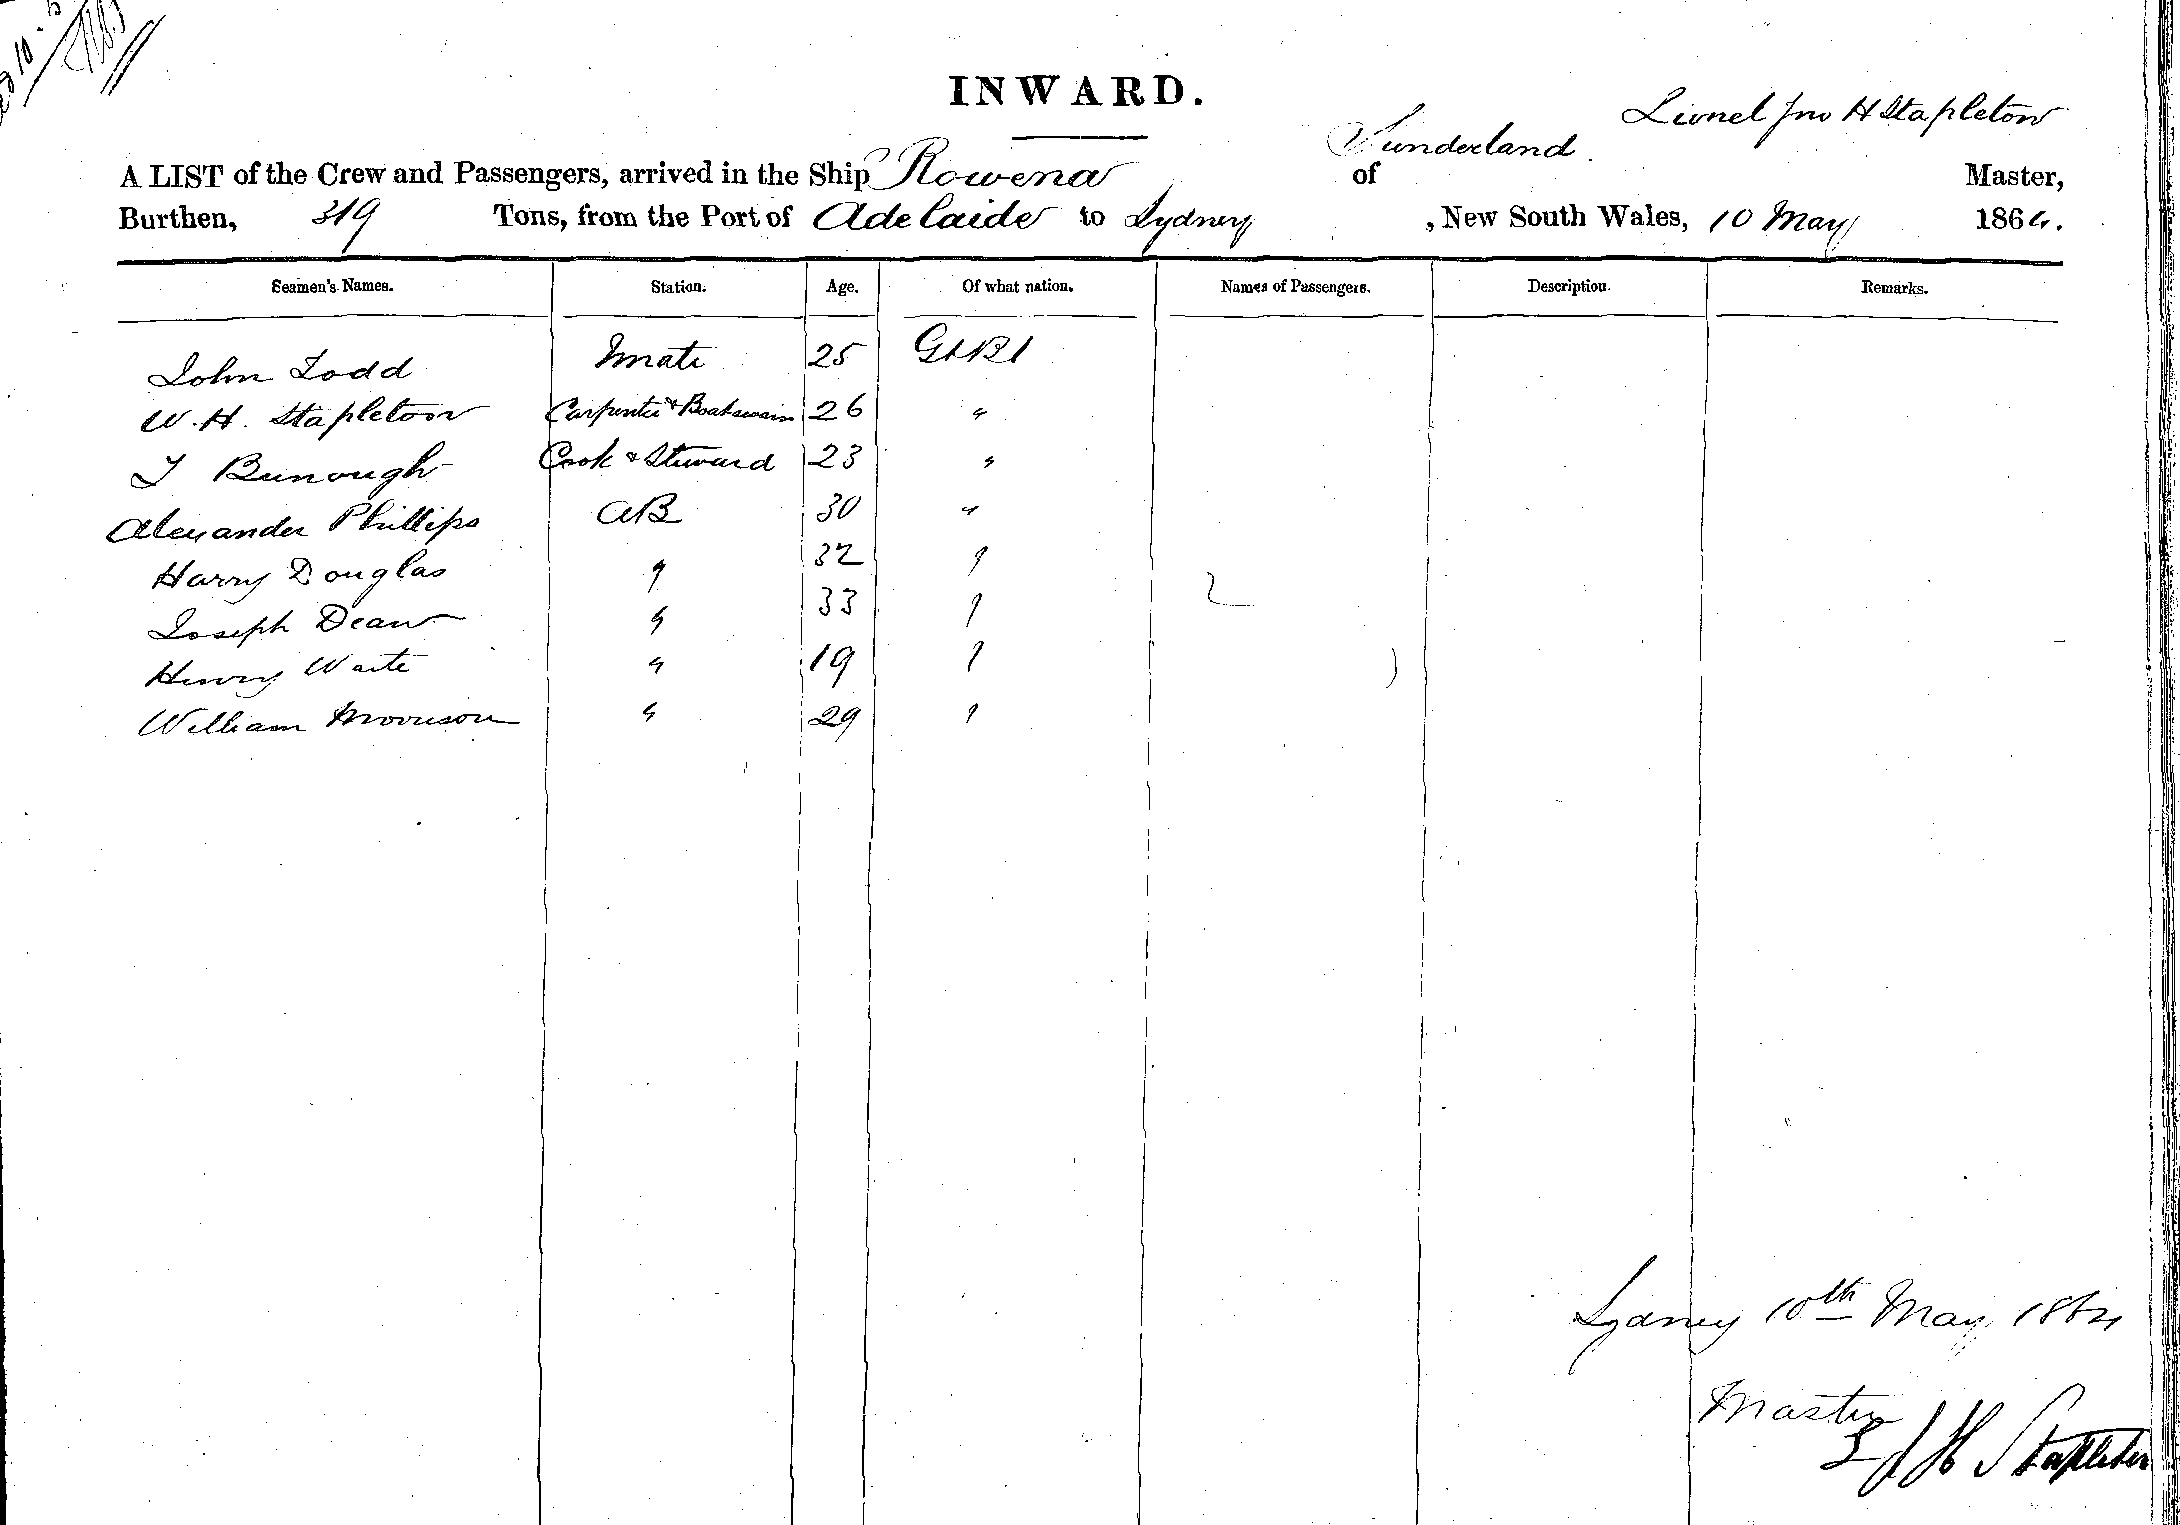 INWARD.
Lionel Jno H Stapleton
Sunderland
A LIST of the Crew and Passengers, arrived in the Ship Rowena of Master,
Burthen, 319 Tons, from the Port of Adelaide to Sydney , New South Wales, 10 May 1864.
Seamen's Names. Station. Age. Of what nation. Names of Passengers. Description. Remarks.
John Todd Mate 25 Gt Bt
W. H. Stapleton Carpenter & Boatswain 26 "
Cook & Steward 23 "
Alexander Phillips AB 30 "
Harry Douglas " 32 "
Joseph Dean " 33 "
Henry Waite " 19 "
William Morrison " 29 "
Sydney 10th May 1864
Master
L J H Stapleton